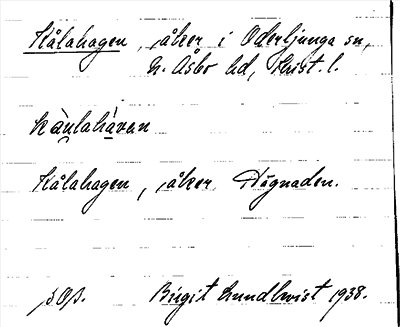 Kålahagen, åker i Oderljunga sn,
N. Åsbo hd, Krist. l.
kàulahávan
Kålahagen, åker, Dögnaden.
sOs. Birgit Lundkvist 1938.